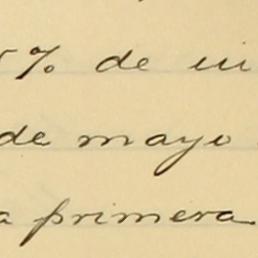 5% de in
de mayo
a primera